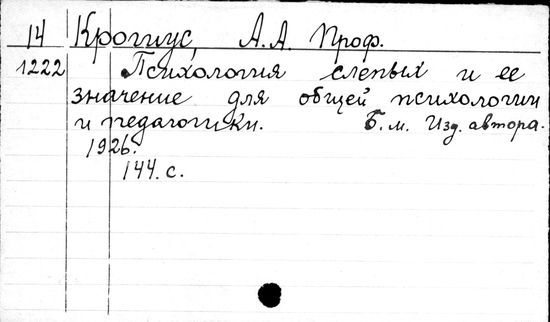 14 Крогиус, А.А. Проф.
1222 Психология слепых и ее
значение для общей психологии
и педагогики. Б.м. Изд. автора.
1926.
144. с.